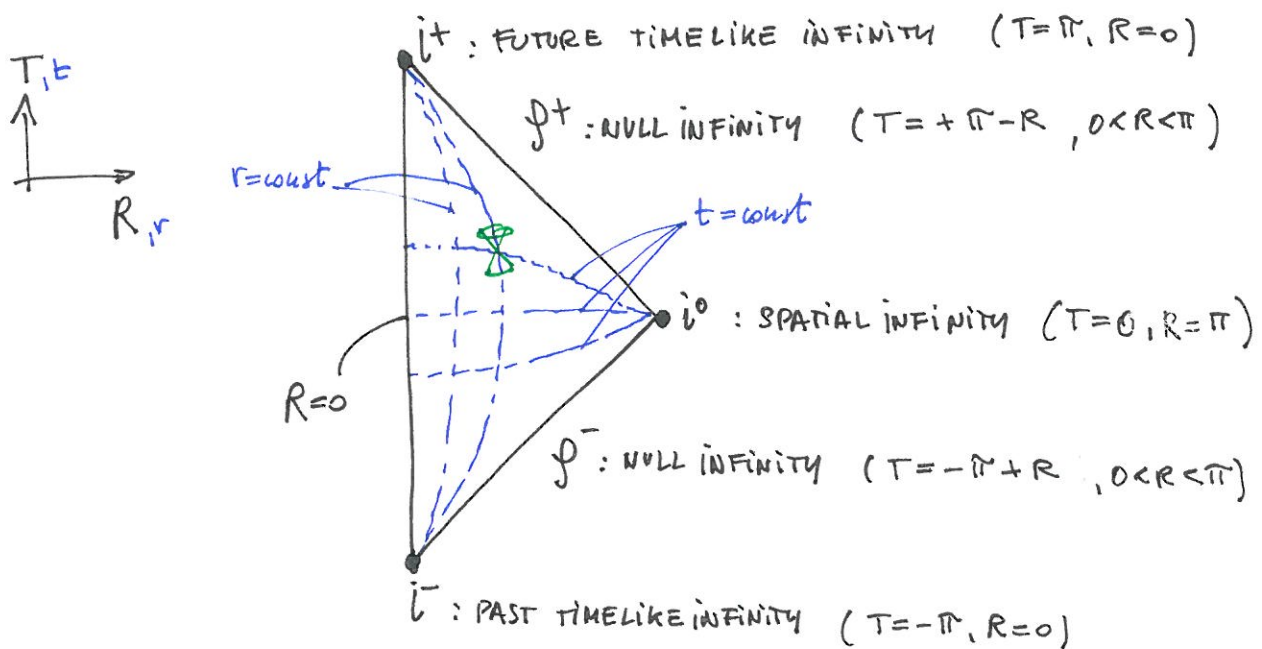 i⁺ : FUTURE TIMELIKE INFINITY (T=π, R=0)
T,t
𝒥⁺ : NULL INFINITY (T=+π-R , 0<R<π)
r=const
R,r
t=const
i⁰ : SPATIAL INFINITY (T=0, R=π)
R=0
𝒥⁻ : NULL INFINITY (T=-π+R , 0<R<π)
i⁻ : PAST TIMELIKE INFINITY (T=-π, R=0)